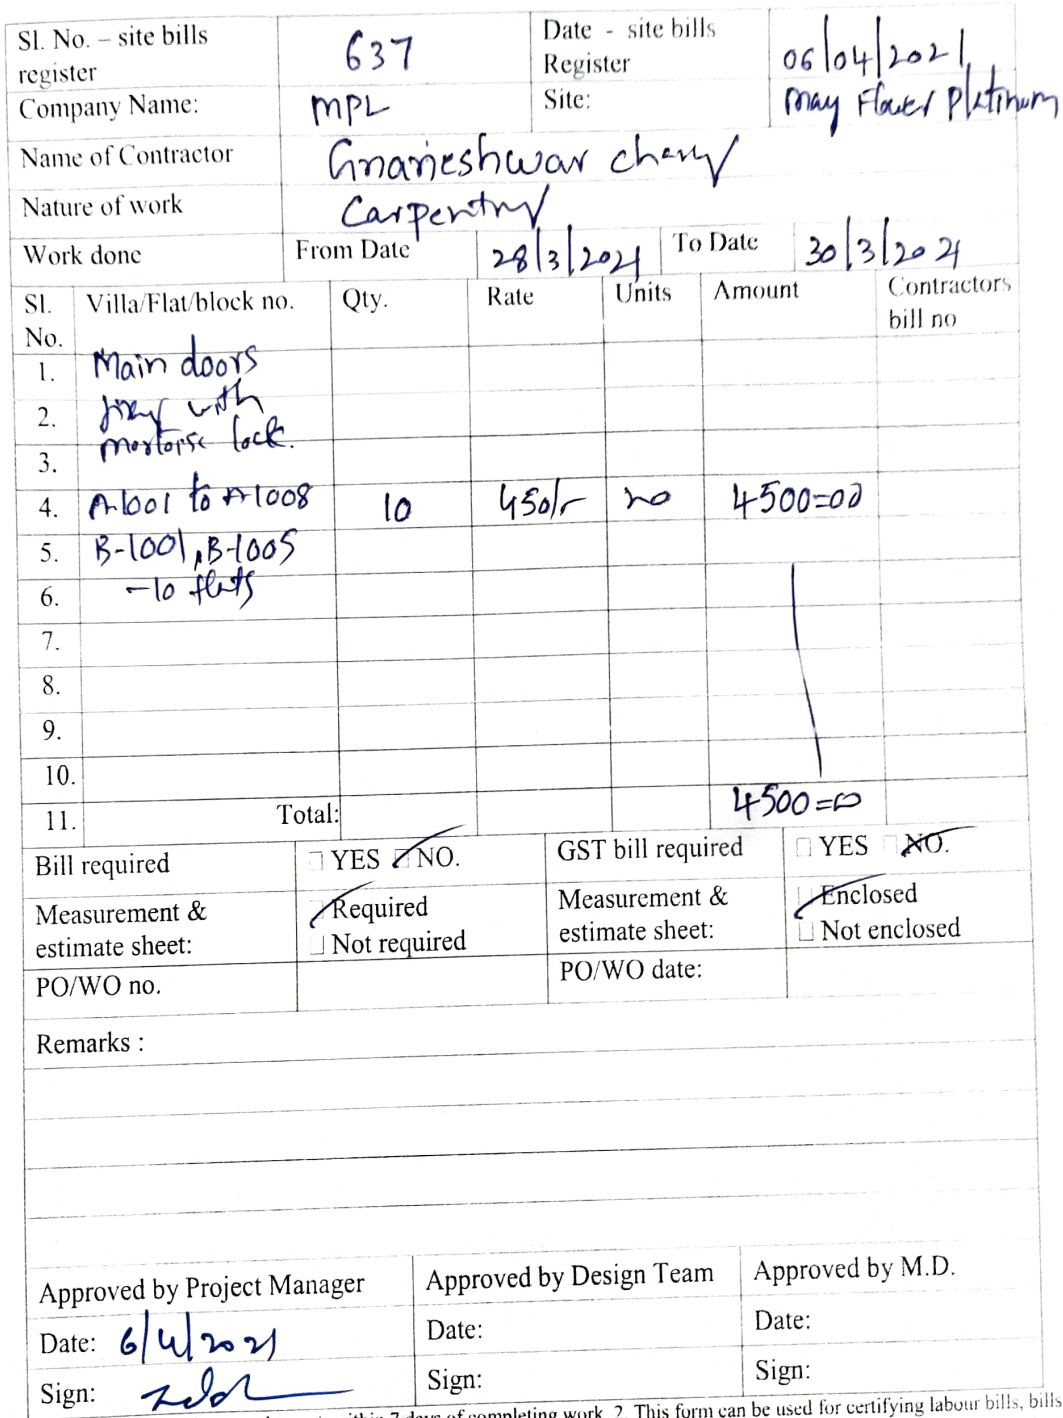 Sl. No. – site bills register 637 Date - site bills Register 06/04/2021
Company Name: MPL Site: May Flower Platinum
Name of Contractor Gnaneshwar chary
Nature of work Carpentry
Work done From Date 28/3/2021 To Date 30/3/2021
Sl. No. Villa/Flat/block no. Qty. Rate Units Amount Contractors bill no
1. Main doors
2. with
3. mortoise lock.
4. A-1001 to A-1008 10 450/- no 4500=00
5. B-1001, B-1005
6. -10 flats
7.
8.
9.
10.
11. Total: 4500=00
Bill required YES NO. GST bill required YES NO.
Measurement & estimate sheet: Required Not required Measurement & estimate sheet: Enclosed Not enclosed
PO/WO no. PO/WO date:
Remarks :
Approved by Project Manager Approved by Design Team Approved by M.D.
Date: 6/4/2021 Date: Date:
Sign: Sign: Sign:
within 7 days of completing work. 2. This form can be used for certifying labour bills, bills